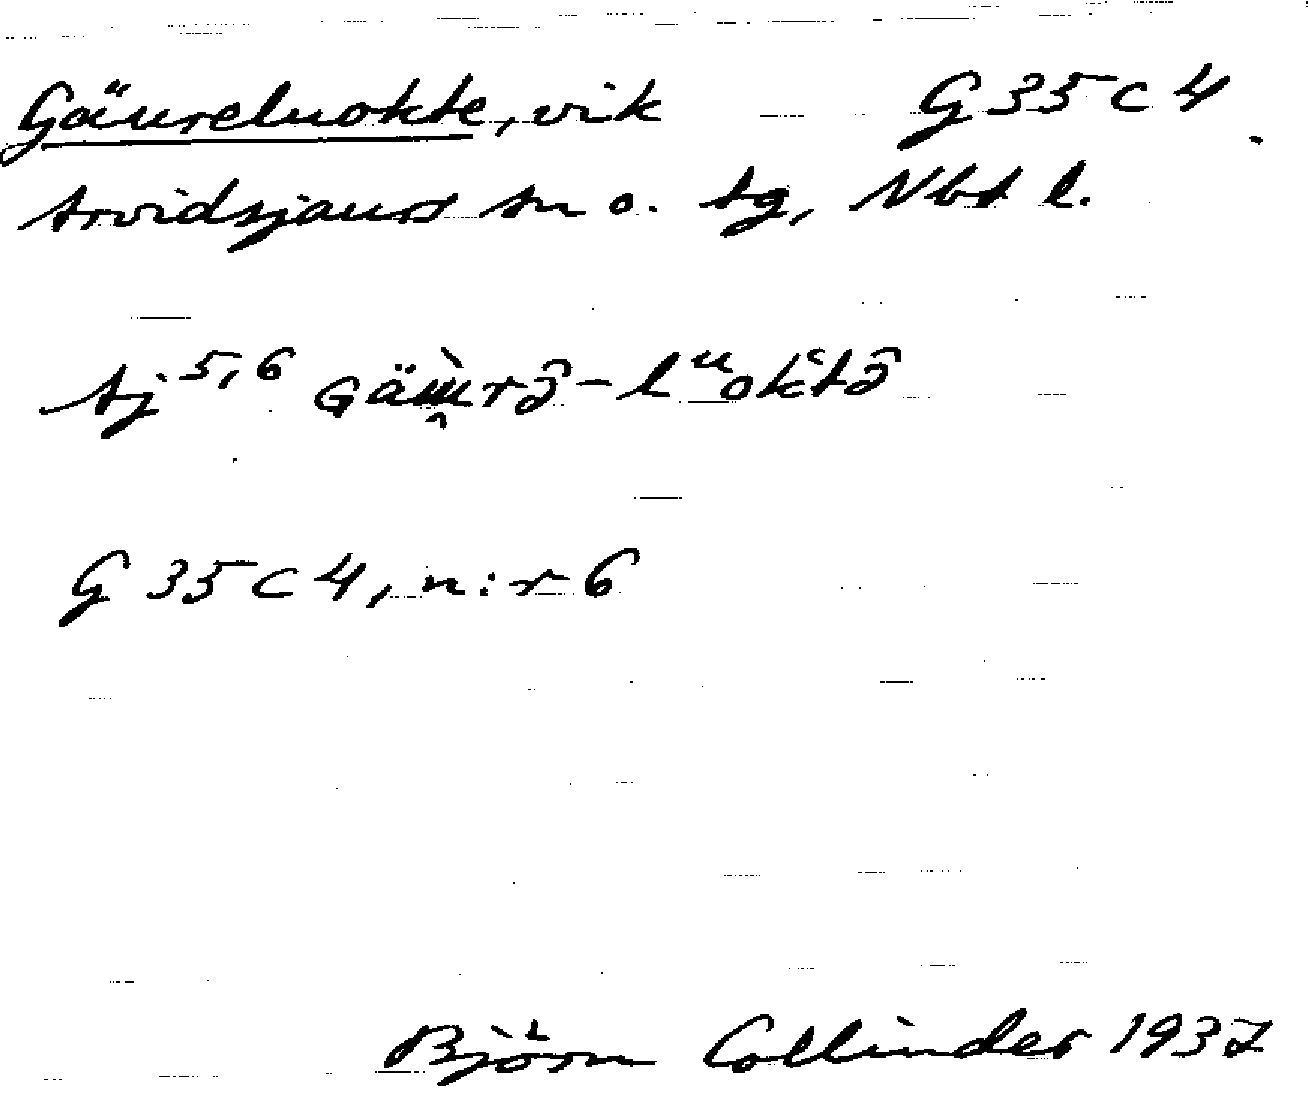 Gäureluokte, vik G 35 C 4
Arvidsjaurs sn o. tg, Nbt l.
Aj 5,6
G 35 C 4, n:r 6
Björn Collinder 1937